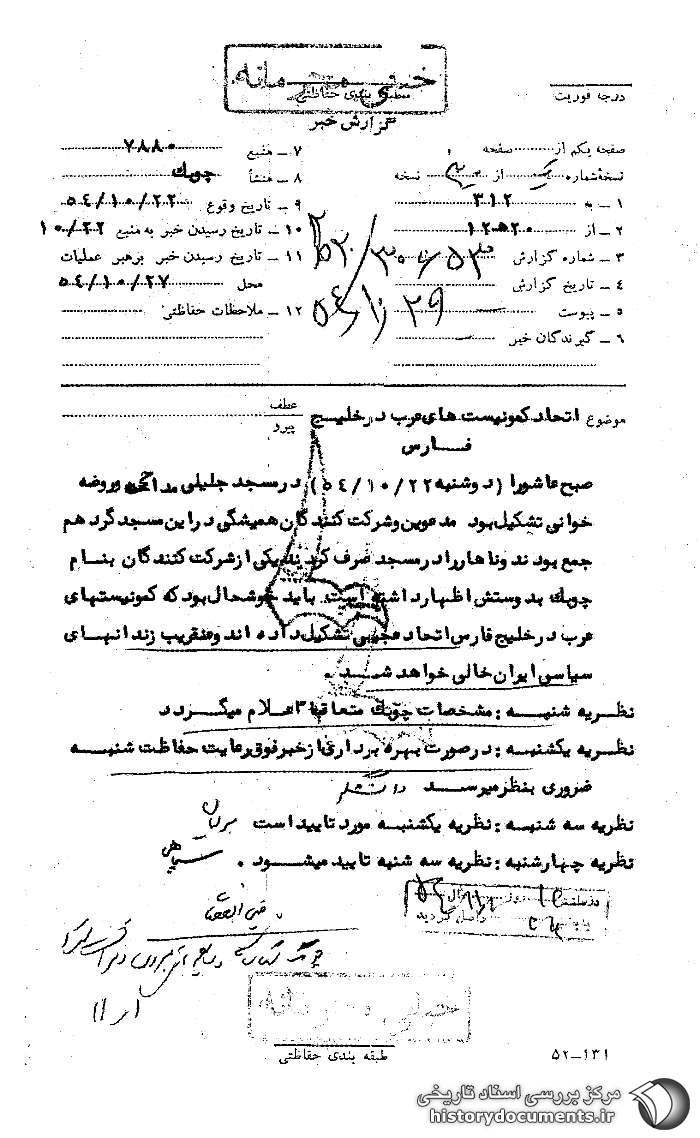 خیلی محرمانه
طبقه بندی حفاظتی
درجه فوریت
گزارش خبر
صفحه یکم از صفحه
نسخه شماره از نسخه
۱ – به ۳۱۲
۲ – از ۱۲ ه ۲۰
۳ – شماره گزارش
۴ – تاریخ گزارش
۵ – پیوست
۶ – گیرندگان خبر
۷ – منبع ۷۸۸۰
۸ – منشأ چوبک
۹ – تاریخ وقوع ۵۴/۱۰/۲۲
۱۰ – تاریخ رسیدن خبر به منبع ۱۰/۲۲
۱۱ – تاریخ رسیدن خبر برهبر عملیات
محل ۵۴/۱۰/۲۷
۱۲ – ملاحظات حفاظتی
موضوع اتحاد کمونیست های عرب در خلیج
فارس
عطف
پیرو
صبح عاشورا (دوشنبه ۵۴/۱۰/۲۲) در مسجد جلیلی مداحی و روضه
خوانی تشکیل بود مدعوین و شرکت کنندگان همیشگی در این مسجد گرد هم
جمع بودند و ناهار را در مسجد صرف کردند یکی از شرکت کنندگان بنام
چوبک بدوستش اظهار داشته است باید خوشحال بود که کمونیستهای
عرب در خلیج فارس اتحاد عجیبی تشکیل داده اند و عنقریب زندانهای
سیاسی ایران خالی خواهد شد .
نظریه شنبه : مشخصات چوبک متعاقبا اعلام میگردد
نظریه یکشنبه : در صورت بهره برداری از خبر فوق رعایت حفاظت شنبه
ضروری بنظر میرسد دانشگر
نظریه سه شنبه : نظریه یکشنبه مورد تایید است
نظریه چهارشنبه : نظریه سه شنبه تایید میشود . سپاهی
واصل گردید
خیلی محرمانه
طبقه بندی حفاظتی
۵۲–۱۳۱
مرکز بررسی اسناد تاریخی
historydocuments.ir